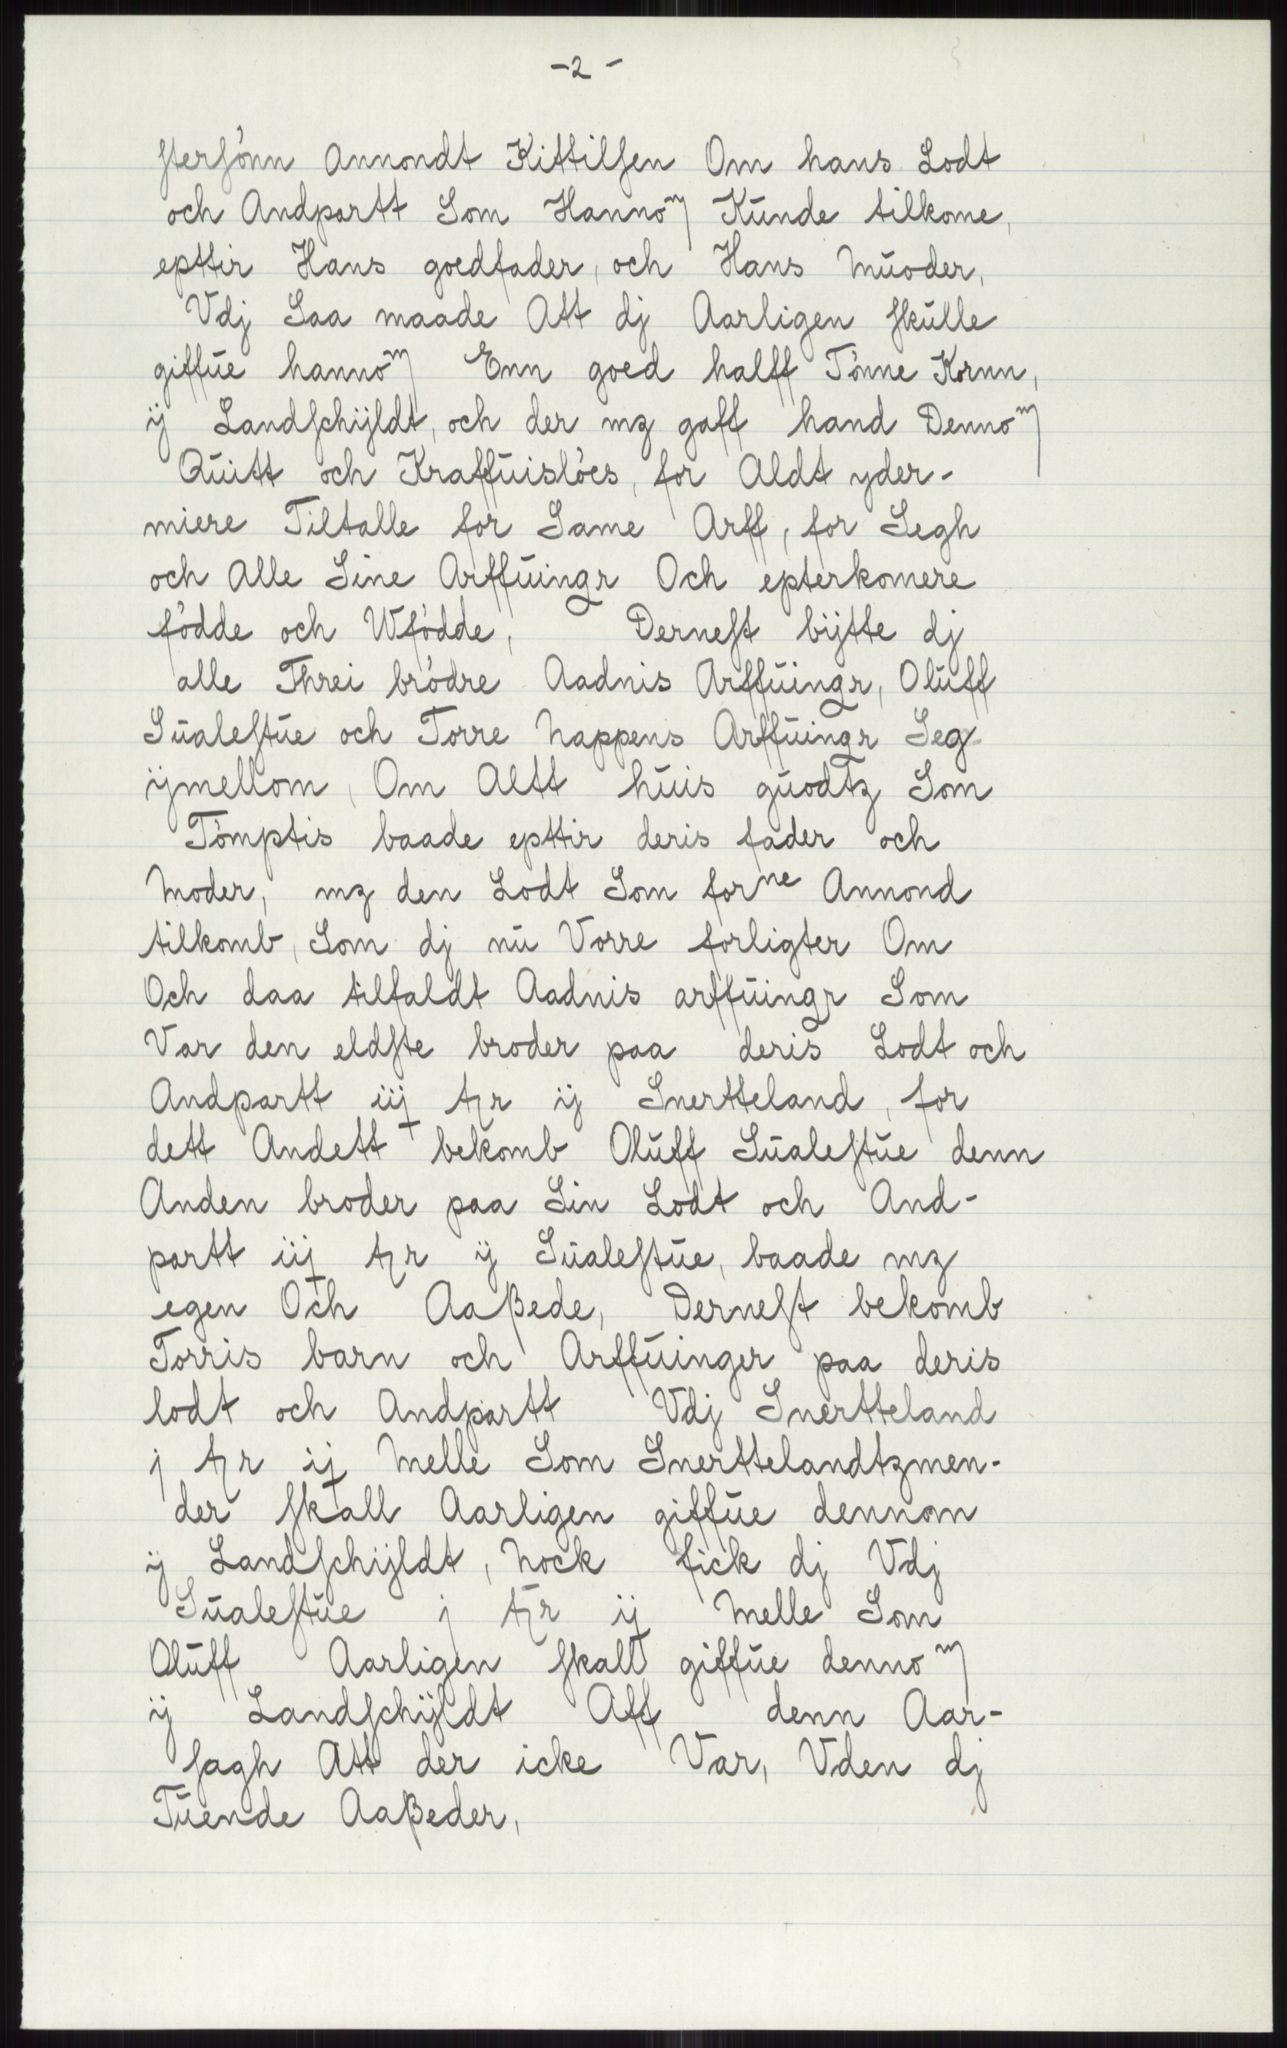 -2-
stersönn Annondt Kittilsen Om hans Lodt
och Andpartt Som Hannom Kunde tilkome,
epttir Hans goedfader, och Hans Muoder,
Vdj Saa maade Att dj Aarligen skulle
giffue hannom Enn goed halff Tönne Kornn,
ij Landschijldt, och der mz gaff hand Dennom
Quitt och Kraffuislöes, for Aldt yder-
miere Tiltalle for Same Arff, for Segh
och Alle Sine Arffuingr Och epterkomere
födde och Wfödde, Dernest bijtte dj
alle Threi brödre Aadnis Arffuingr, Oluff
Sualestue och Torre Nappens Arffuingr Seg
ijmellom, Om Altt huis guodtz Som
Tömptis baade epttir deris fader och
Moder, mz den Lodt Som forne Annond
tilkomb, Som dj nu Vorre forligter Om
Och daa tilfaldt Aadnis arffuingr Som
Var den eldste broder paa deris Lodt och
Andpartt iij tr ij Snertteland, for
dett Andett bekomb Oluff Sualestue denn
Anden broder paa Sin Lodt och And-
partt iij tr ij Sualestue, baade mz
egen Och Aaßede, Dernest bekomb
Torris barn och Arffuinger paa deris
lodt och Andpartt Vdj Snertteland
j tr ij Melle Som Snerttelandtzmen-
der skall Aarligen giffue dennom
ij Landschijldt, Nock fick dj Vdj
Sualestue j tr ij Melle Som
Oluff Aarligen skall giffue dennom
ij Landschijldt Aff denn Aar-
sagh Att der icke Var, Vden dj
Tuende Aaßeder,